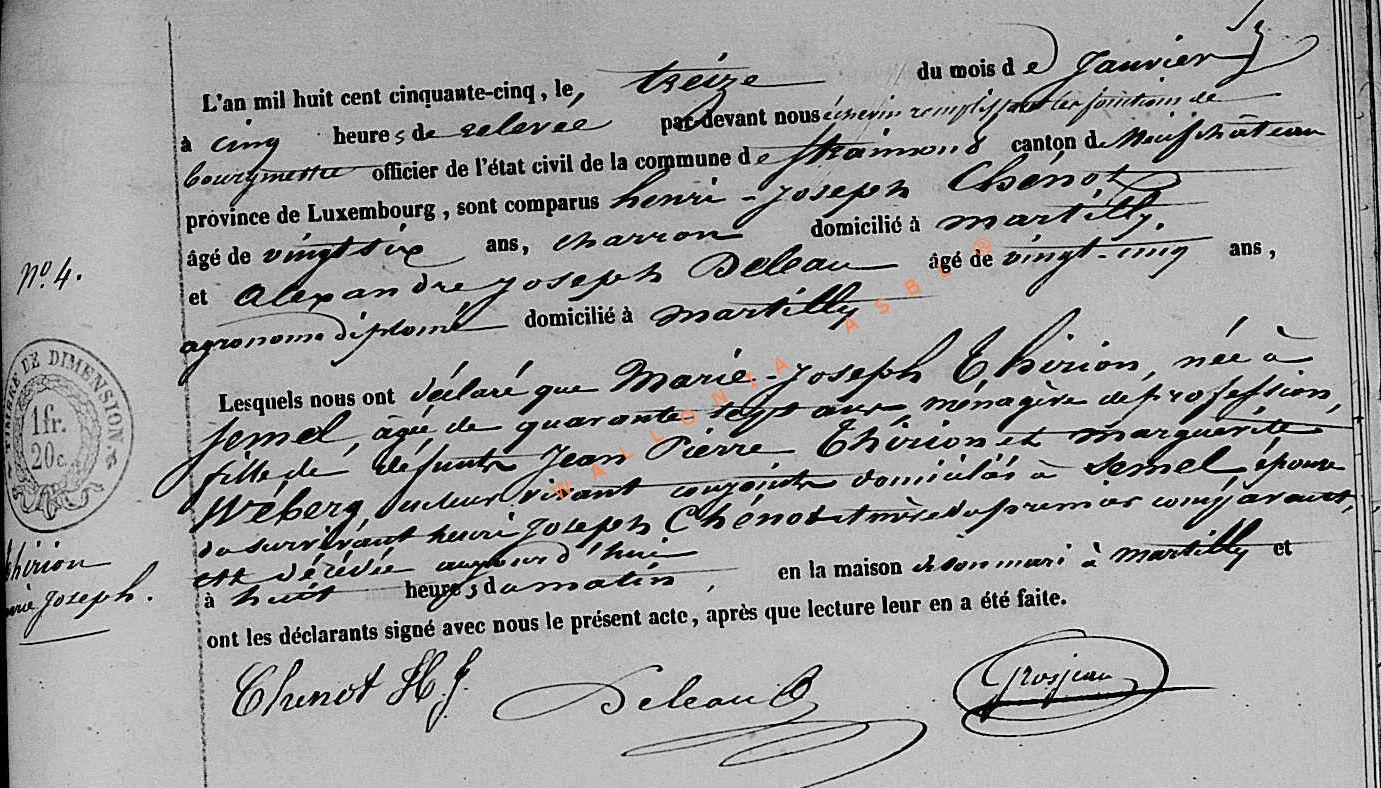 L'an mil huit cent cinquante-cinq, le, treize du mois de Janvier
à cinq heures de relevée par-devant nous échevin remplissant les fonctions de
bourgmestre officier de l'état civil de la commune de Straimont canton de Neufchâteau
province de Luxembourg, sont comparus henri-Joseph Chénot
âgé de vingt six ans, charron domicilié à martilly.
et Alexandre Joseph Deleau âgé de vingt-cinq ans,
agronome diplomé domicilié à martilly
Lesquels nous ont déclaré que Marie-Joseph Thirion, née à
Semel, agée de quarante sept ans, ménagère de profession,
fille de défunts Jean Pierre Thirion et marguérite
Wéberg, en leur vivant conjoints domiciliés à Semel, épouse
du survivant henri Joseph Chénot et mère du premier comparant,
est décédée aujourd'hui
à huit heures du matin, en la maison de son mari à martilly et
ont les déclarants signé avec nous le présent acte, après que lecture leur en a été faite.
Chenot H. J. Deleau Grosjean
No. 4.
TIMBRE DE DIMENSION
1fr.
20c.
Thirion
Marie Joseph.
WALLONIA ASBL ®